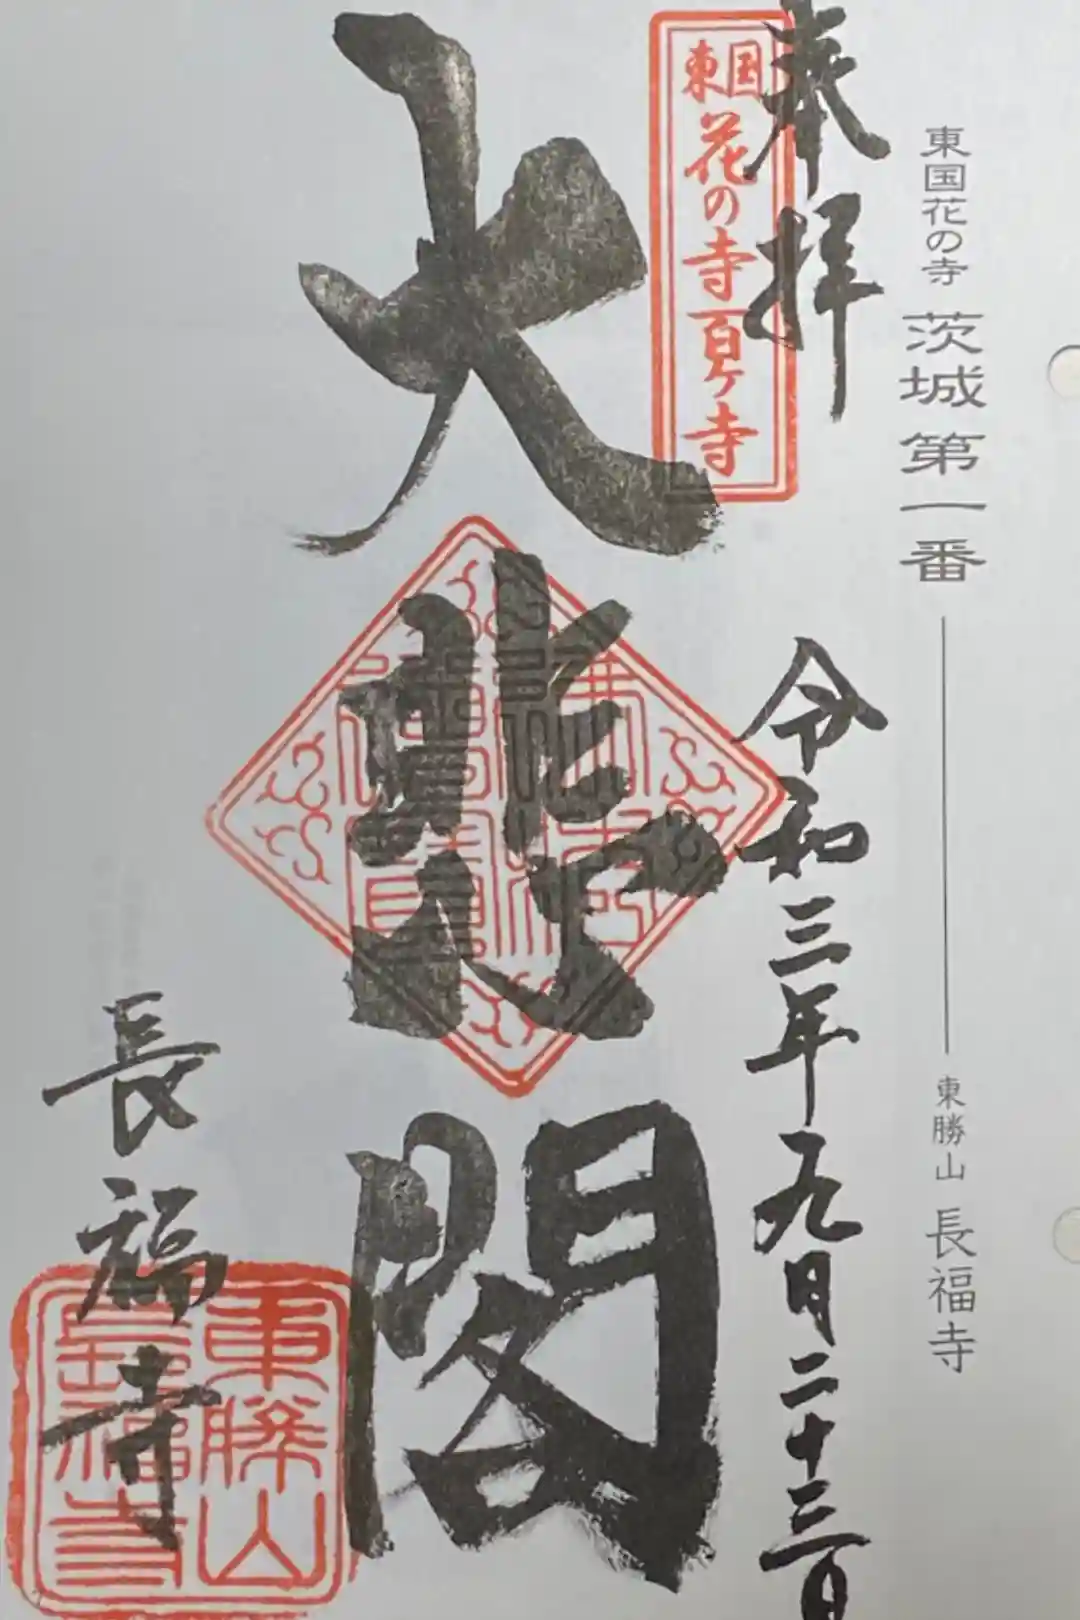 東国花の寺 茨城第一番
東勝山 長福寺
奉拝
令和三年九月二十三日
東国
花の寺百ヶ寺
大悲閣
佛法僧寶
長福寺
東勝山
長福寺